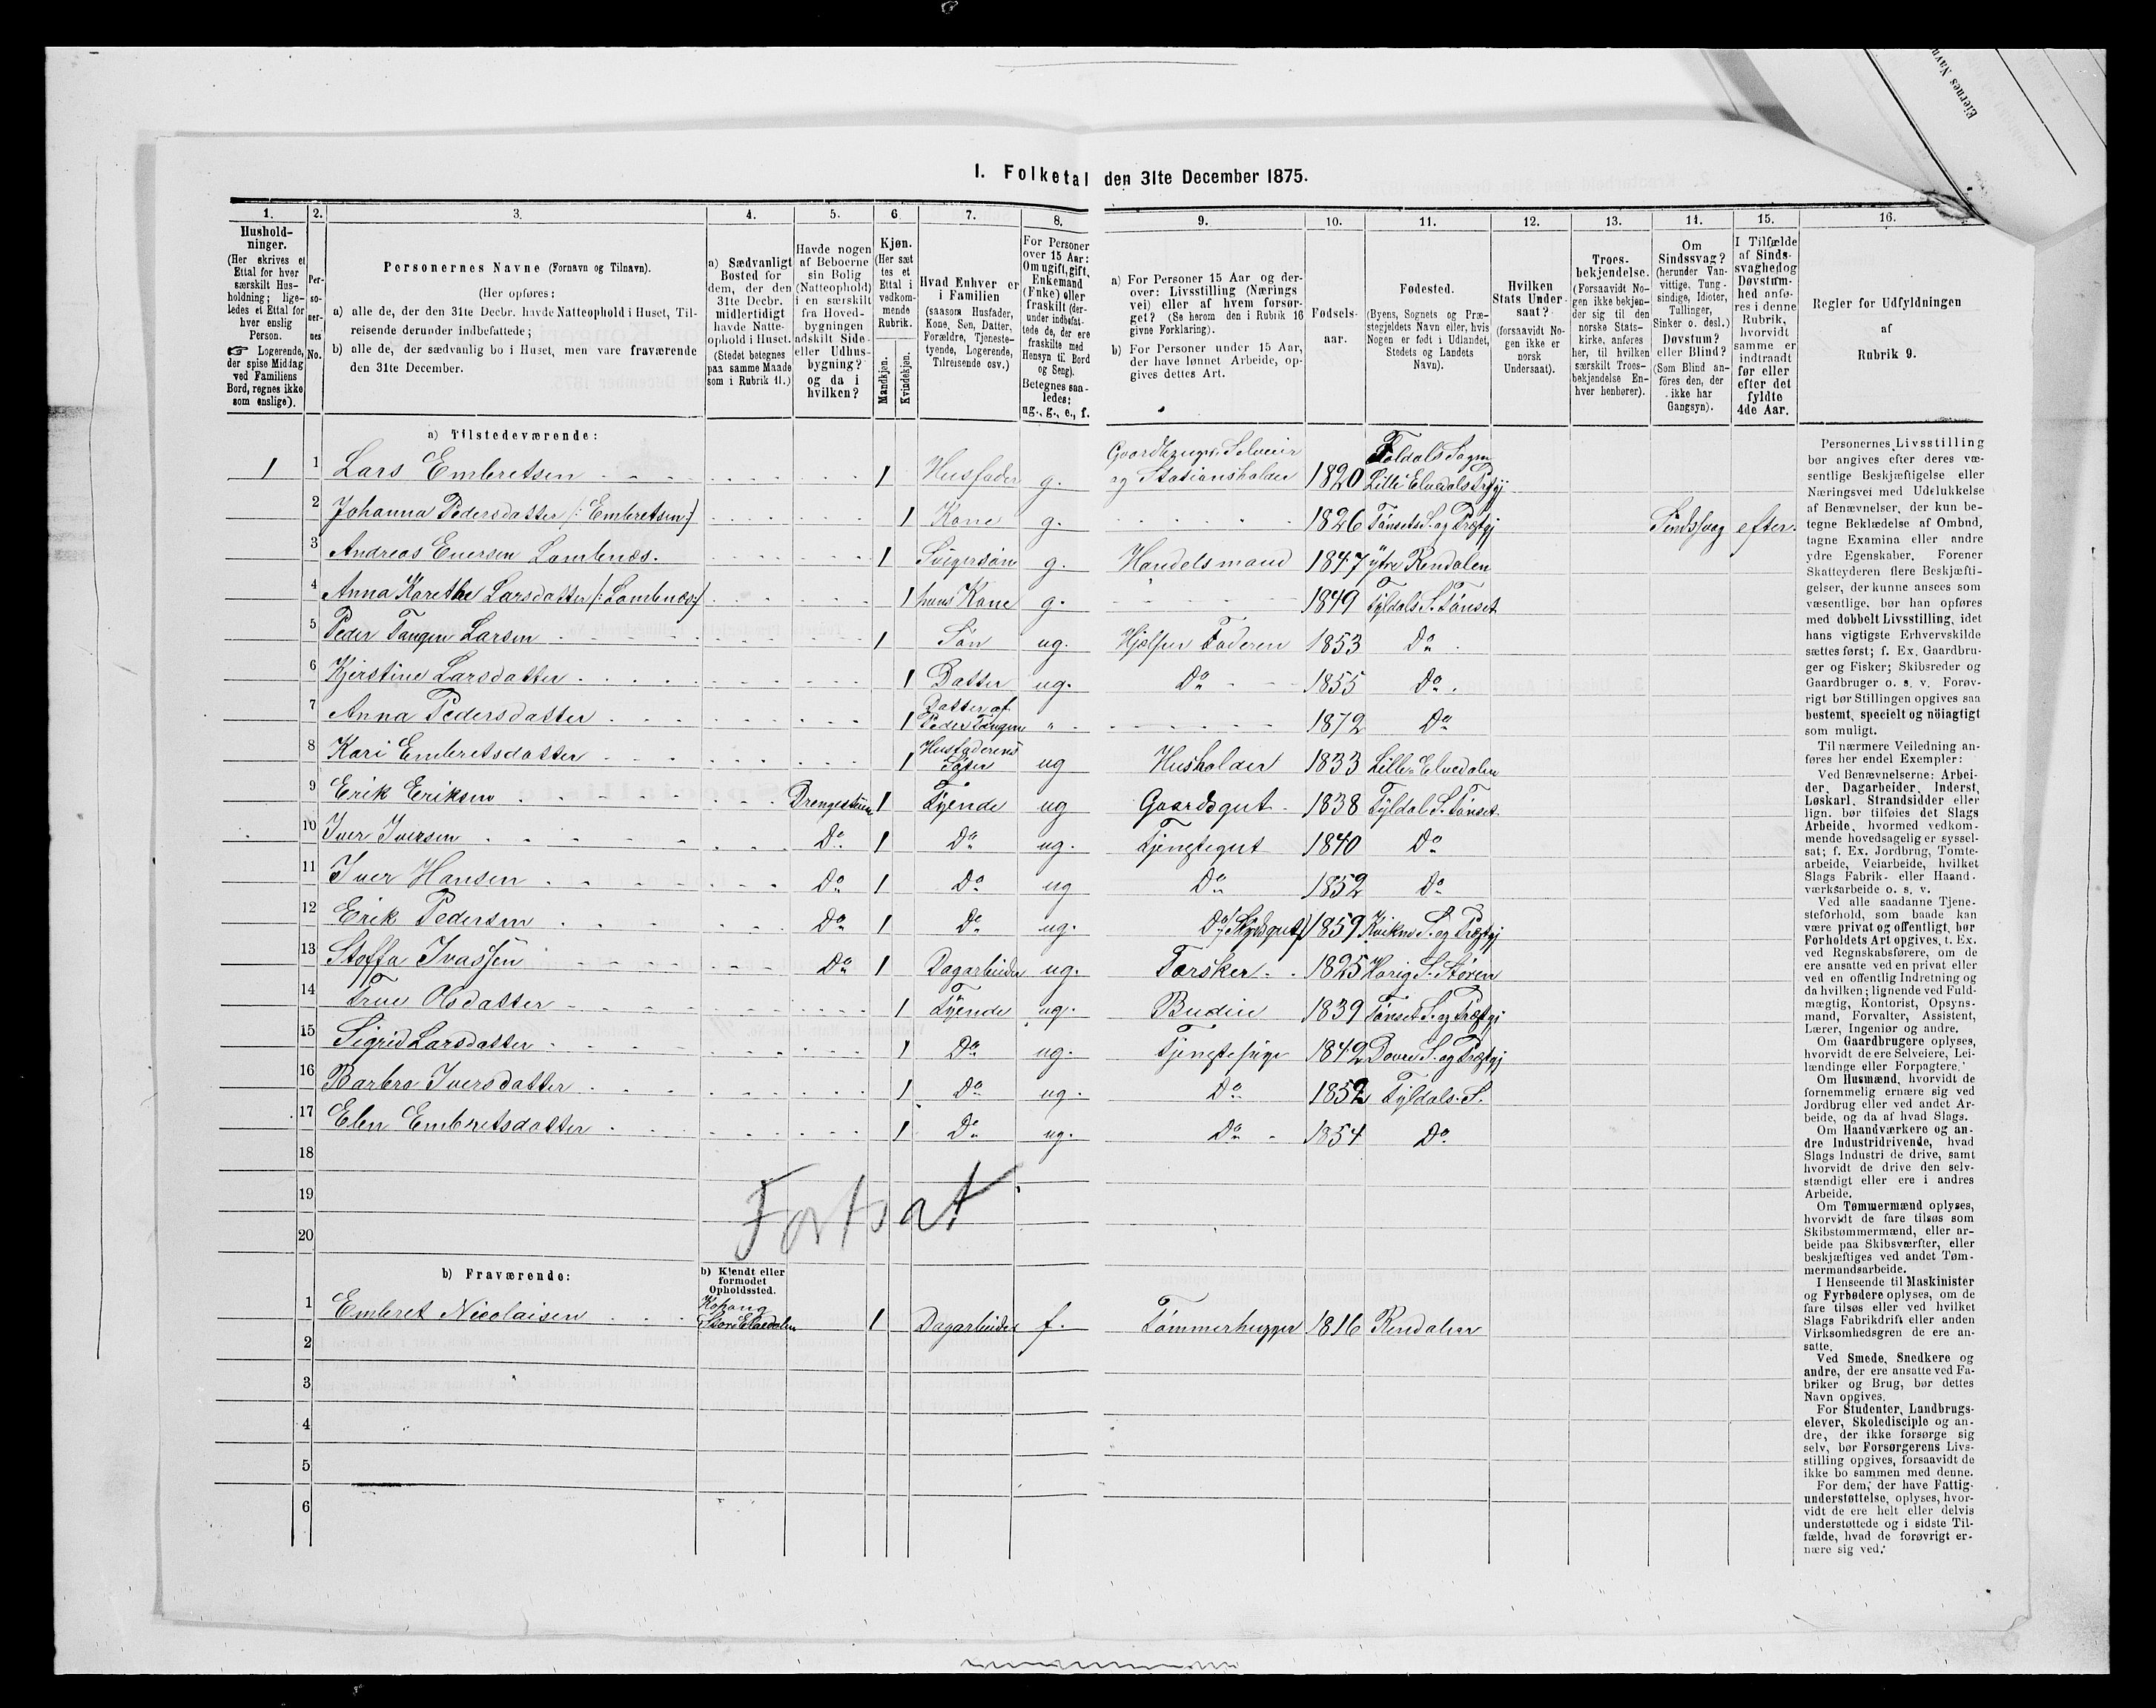 I. Folketal den 31te December 1875.
1. 2. 3. 4. 5. 6 7. 8. 9. 10. 11. 12. 13. 14. 15. 16.
Hushold-
ninger.
(Her skrives et
Ettal for hver
særskilt Hus-
holdning; lige-
ledes et Ettal for
hver enslig
Person.
☞ Logerende,
der spise Middag
ved Familiens
Bord, regnes ikke
som enslige).
Per-
so-
ner-
nes
No.
Personernes Navne (Fornavn og Tilnavn).
(Her opføres:
a) alle de, der den 31te Decbr. havde Natteophold i Huset, Til-
reisende derunder indbefattede;
b) alle de, der sædvanlig bo i Huset, men vare fraværende
den 31te December.
a) Sædvanligt
Bosted for
dem, der den
31te Decbr.
midlertidigt
havde Natte-
ophold i Huset.
(Stedet betegnes
paa samme Maade
som i Rubrik 11.)
Havde nogen
af Beboerne
sin Bolig
(Natteophold)
i en særskilt
fra Hoved-
bygningen
adskilt Side-
eller Udhus-
bygning?
og da i
hvilken?
Kjøn.
(Her sæt
tes et
Ettal i
vedkom-
mende
Rubrik.
Mandkjøn.
Kvindekjøn.
Hvad Enhver er
i Familien
(saasom Husfader,
Kone, Søn, Datter,
Forældre, Tjeneste-
tyende, Logerende,
Tilreisende osv.)
For Personer
over 15 Aar:
Om ugift, gift,
Enkemand
(Enke) eller
fraskilt (der-
under indbefat-
tede de, der ere
fraskilte med
Hensyn til Bord
og Seng).
Betegnes saa-
ledes:
ug., g., e., f.
a) For Personer 15 Aar og der-
over: Livsstilling (Nærings
vei) eller af hvem forsør-
get? (Se herom den i Rubrik 16
givne Forklaring).
b) For Personer under 15 Aar,
der have lønnet Arbeide, op-
gives dettes Art.
Fødsels-
aar.
Fødested.
(Byens, Sognets og Præ-
stegjeldets Navn eller, hvis
Nogen er født i Udlandet,
Stedets og Landets
Navn).
Hvilken
Stats Under-
saat?
(forsaavidt No-
gen ikke er
norsk
Undersaat).
Troes-
bekjendelse.
(Forsaavidt No-
gen ikke bekjen-
der sig til den
norske Stats-
kirke, anføres
her, til hvilken
særskilt Troes-
bekjendelse En-
hver henhører).
Om
Sindssvag?
(herunder Van-
vittige, Tung-
sindige, Idioter,
Tullinger,
Sinker o. desl.)
Døvstum?
eller Blind?
(Som Blind an-
føres den, der
ikke har
Gangsyn).
I Tilfælde
af Sinds-
svaghed og
Døvstum-
hed anfø-
res i denne
Rubrik,
hvorvidt
samme er
indtraadt
før eller
efter det
fyldte
4de Aar.
Regler for Udfyldningen
af
Rubrik 9.
a) Tilstedeværende:
1 1 Lars Embretsen 1 Husfader g. Gaardbruger Selveier og Stationsholder 1820 Foldals Sogn Lille Elvedals Prgj
2 Johanna Pedersdatter (: Embretsen:) 1 Kone g. 1826 Tønsets S. og Præstgj Sindssvag efter.
3 Andreas Evensen Lombnæs. 1 Svigersøn g. Handelsmand 1847 ytre Rendalen
4 Anna Karethe Larsdatter (: Lombnæs:) 1 hans Kone g. 1849 Tyldals S. Tønset
5 Peder Tangen Larsen 1 Søn ug. Hjelper Faderen 1853 Do
6 Kjerstine Larsdatter 1 Datter ug. Do 1855 Do
7 Anna Pedersdatter 1 Datter af Peder Tangen " 1872 Do
8 Kari Embretsdatter 1 Husfaderens Søster ug Husholder 1833 Lille Elvedalen
9 Erik Eriksen Drengestuen 1 Tyende ug Gaardsgut 1838 Tyldal S. Tønset
10 Iver Iversen Do 1 Do ug. Tjenstegut 1840 Do
11 Iver Hansen Do 1 Do ug Do 1852 Do
12 Erik Pedersen Do 1 Do ug. Do (Skydsgut) 1859 Kvikne S. og Præstgj
13 Stoffa Ivassen Do 1 Dagarbeider ug. Tærsker 1825 Horig S. Støren
14 True Olsdatter 1 Tyende ug. Budeie 1839 Tønset S. og Præstgj
15 Sigrid Larsdatter 1 Do ug. Tjenstepige 1842 Dovre S. og Præstgj
16 Barbro Iversdatter 1 Do ug. Do 1852 Tyldals S.
17 Elen Embretsdatter 1 Do ug. Do 1854 Do
18
19
20
Fortsat
b) Fraværende:
b) Kjendt eller
formodet
Opholdssted.
1 Embret Nicolaisen Store Elvedalen 1 Dagarbeider f. Tømmerhugger 1816 Rendalen
2
3
4
5
6
Personernes Livsstilling
bør angives efter deres væ-
sentlige Beskjæftigelse eller
Næringsvei med Udelukkelse
af Benævnelser, der kun be-
tegne Beklædelse af Ombud,
tagne Examina eller andre
ydre Egenskaber. Forener
Skatteyderen flere Beskjæfti-
gelser, der kunne ansees som
væsentlige, bør han opføres
med dobbelt Livsstilling, idet
hans vigtigste Erhvervskilde
sættes først; f. Ex. Gaardbru-
ger og Fisker; Skibsreder og
Gaardbruger o. s. v. Forøv-
rigt bør Stillingen opgives saa
bestemt, specielt og nöiagtigt
som muligt.
Til nærmere Veiledning an-
føres her endel Exempler:
Ved Benævnelserne: Arbei-
der, Dagarbeider, Inderst,
Løskarl, Strandsidder eller
lign. bør tilføies det Slags
Arbeide, hvormed vedkom-
mende hovedsagelig er syssel-
sat; f. Ex. Jordbrug, Tomte-
arbeide, Veiarbeide, hvilket
Slags Fabrik- eller Haand-
værksarbeide o. s. v.
Ved alle saadanne Tjene-
steforhold, som baade kan
være privat og offentligt, bør
Forholdets Art opgives, t. Ex.
ved Regnskabsførere, om de
ere ansatte ved en privat eller
ved en offentlig Indretning og
da hvilken; lignende ved Fuld-
mægtig, Kontorist, Opsyns-
mand, Forvalter, Assistent,
Lærer, Ingeniør og andre.
Om Gaardbrugere oplyses,
hvorvidt de ere Selveiere, Lei-
lændinge eller Forpagtere.
Om Husmænd, hvorvidt de
fornemmelig ernære sig ved
Jordbrug eller ved andet Ar-
beide, og da af hvad Slags.
Om Haandværkere og an-
dre Industridrivende, hvad
Slags Industri de drive, samt
hvorvidt de drive den selv-
stændigt eller ere i andres
Arbeide.
Om Tømmermænd oplyses,
hvorvidt de fare tilsøs som
Skibstømmermænd, eller ar-
beide paa Skibsværfter, eller
beskjæftiges ved andet Tøm-
mermandsarbeide.
I Henseende til Maskinister
og Fyrbødere oplyses, om de
fare tilsøs eller ved hvilket
Slags Fabrikdrift eller anden
Virksomhedsgren de ere an-
satte.
Ved Smede, Snedkere og
andre, der ere ansatte ved Fa-
briker og Brug, bør dettes
Navn opgives.
For Studenter, Landbrugs-
elever, Skoledisciple og an-
dre, der ikke forsørge sig
selv, bør Forsørgerens Livs-
stilling opgives, forsaavidt de
ikke bo sammen med denne.
For dem, der have Fattig-
understøttelse, oplyses, hvor-
vidt de ere helt eller delvis
understøttede og i sidste Til-
fælde, hvad de forøvrigt er-
nære sig ved.
Eiernes Navn